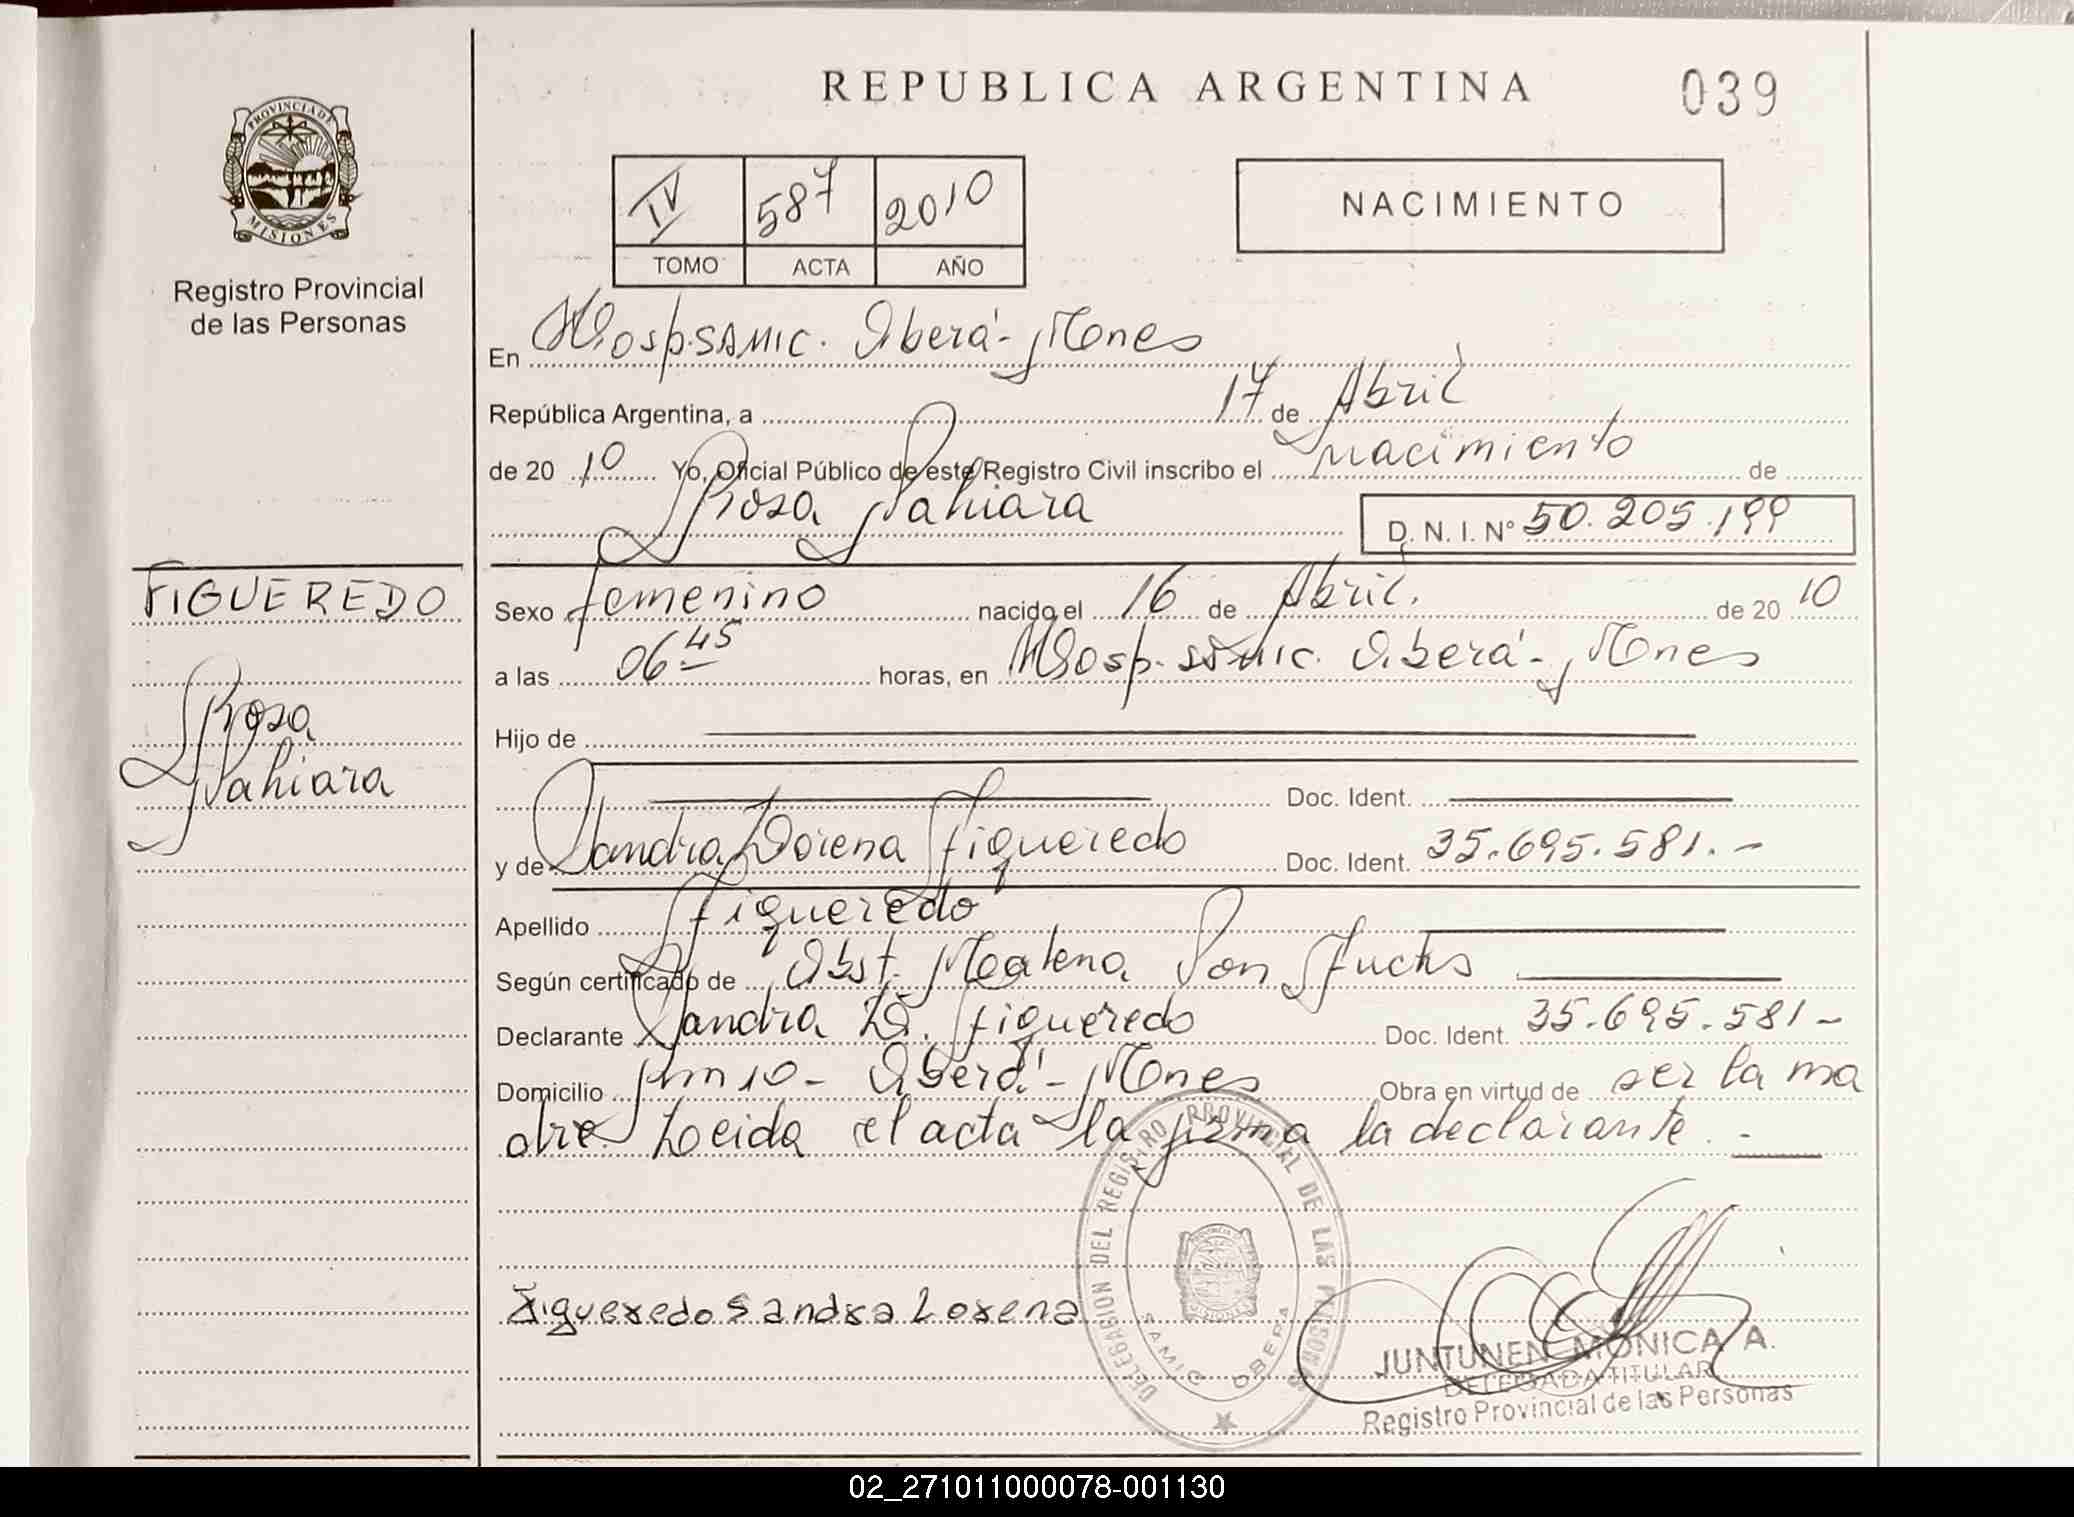 REPUBLICA ARGENTINA
039
PROVINCIA DE
MISIONES
Registro Provincial
de las Personas
IV 587 2010
TOMO ACTA AÑO
NACIMIENTO
En Hosp. SAMIC. Oberá - Mnes
República Argentina, a 17 de Abril
de 20 10 Yo, Oficial Público de este Registro Civil inscribo el nacimiento de
Rosa Nahiara D. N. I. Nº 50.205.199
FIGUEREDO
Rosa
Nahiara
Sexo femenino nacido el 16 de Abril. de 20 10
a las 06 45 horas, en Hosp. SAMIC. Oberá - Mnes
Hijo de
Doc. Ident.
y de Sandra Lorena Figueredo Doc. Ident. 35.695.581.-
Apellido Figueredo
Según certificado de Obst. Malena Von Fuchs
Declarante Sandra L. Figueredo Doc. Ident. 35.695.581-
Domicilio km 10 - Oberá - Mnes Obra en virtud de ser la ma
dre. Leida el acta la firma la declarante. -
Figueredo Sandra Lorena
DELEGACION DEL REGISTRO PROVINCIAL DE LAS PERSONAS
SAMIC OBERA
JUNTUNEN MONICA A.
DELEGADA TITULAR
Registro Provincial de las Personas
02_271011000078-001130